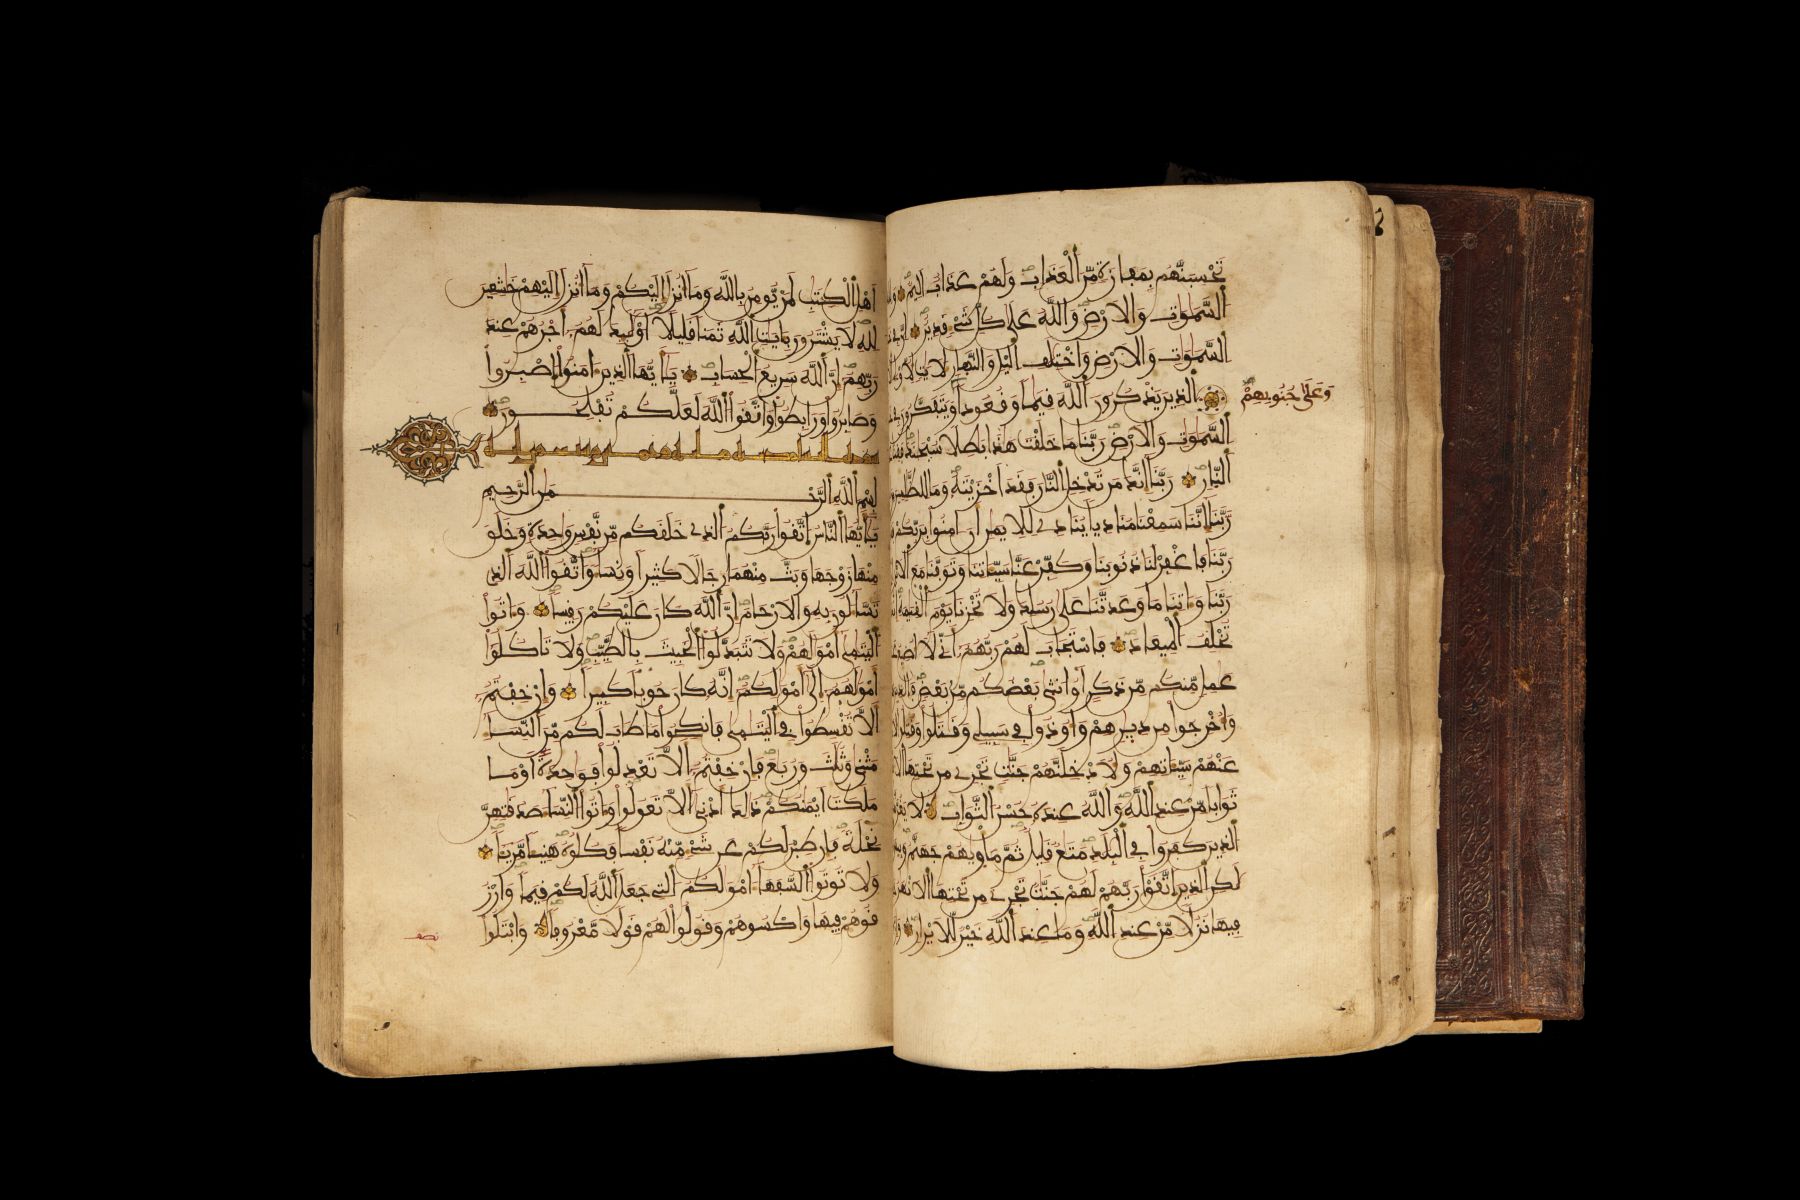 تحسبنهم بمفازة من العذاب ولهم عذاب اليم
السموات والارض والله على كل شيء قدير
السموات والارض واختلف اليل والنهار لايت
الذين يذكرون الله قيما وقعودا ويتفكرون في
وعلى جنوبهم
السموت والارض ربنا ما خلقت هذا بطلا سبحنك
النار ربنا انك من تدخل النار فقد اخزيته وما للظلمين
ربنا اننا سمعنا مناديا ينادي للايمن ان امنوا بربكم
ربنا فاغفر لنا ذنوبنا وكفر عنا سيئاتنا وتوفنا مع
ربنا واتنا ما وعدتنا على رسلك ولا تخزنا يوم القيمة
تخلف الميعاد فاستجاب لهم ربهم اني لا اضيع
عمل منكم من ذكر او انثى بعضكم من بعض
واخرجوا من ديرهم واوذوا في سبيلي وقتلوا وقتلوا
عنهم سيئاتهم ولادخلنهم جنت تجري من تحتها
ثوابا من عند الله والله عنده حسن الثواب لا
الذين كفروا في البلد متع قليل ثم ماويهم جهنم
لكن الذين اتقوا ربهم لهم جنت تجري من تحتها الانهر
فيها نزلا من عند الله وما عند الله خير للابرار
اهل الكتب لمن يومن بالله وما انزل اليكم وما انزل اليهم خشعين
لله لا يشترون بايت الله ثمنا قليلا اوليك لهم اجرهم عند
ربهم ان الله سريع الحساب يايها الذين امنوا اصبروا
وصابروا ورابطوا واتقوا الله لعلكم تفلحون
بسم الله الرحمن الرحيم
يايها الناس اتقوا ربكم الذي خلقكم من نفس وحدة وخلق
منها زوجها وبث منهما رجالا كثيرا ونسا واتقوا الله الذي
تسالون به والارحام ان الله كان عليكم رقيبا واتوا
اليتمى امولهم ولا تتبدلوا الخبيث بالطيب ولا تاكلوا
امولهم الى امولكم انه كان حوبا كبيرا وان خفتم
الا تقسطوا في اليتمى فانكحوا ما طاب لكم من النسا
مثنى وثلث وربع فان خفتم الا تعدلوا فوحدة او ما
ملكت ايمنكم ذلك ادنى الا تعولوا واتوا النسا صدقتهن
نحلة فان طبن لكم عن شيء منه نفسا فكلوه هنيئا مريئا
ولا توتوا السفها امولكم التي جعل الله لكم قيما وارز
قوهم فيها واكسوهم وقولوا لهم قولا معروفا وابتلوا
نصف